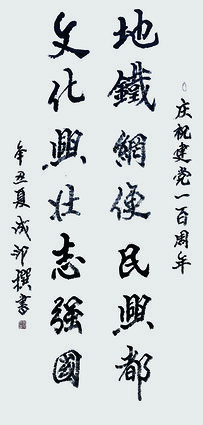 庆祝建党一百周年
地鐵網便民興都
文化興壮志強國
辛丑夏成卯撰書